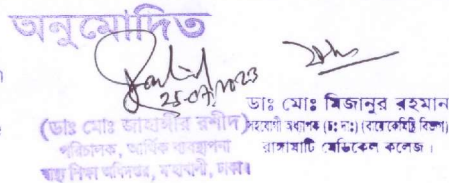 অনুমোদিত
25-07-2023
(ডাঃ মোঃ জাহাঙ্গীর রশীদ)
পরিচালক, আর্থিক ব্যবস্থাপনা
স্বাস্থ্য শিক্ষা অধিদপ্তর, মহাখালী, ঢাকা।
ডাঃ মোঃ মিজানুর রহমান
সহযোগী অধ্যাপক (চঃ দাঃ) (বায়োকেমিষ্ট্রি বিভাগ)
রাঙ্গামাটি মেডিকেল কলেজ।